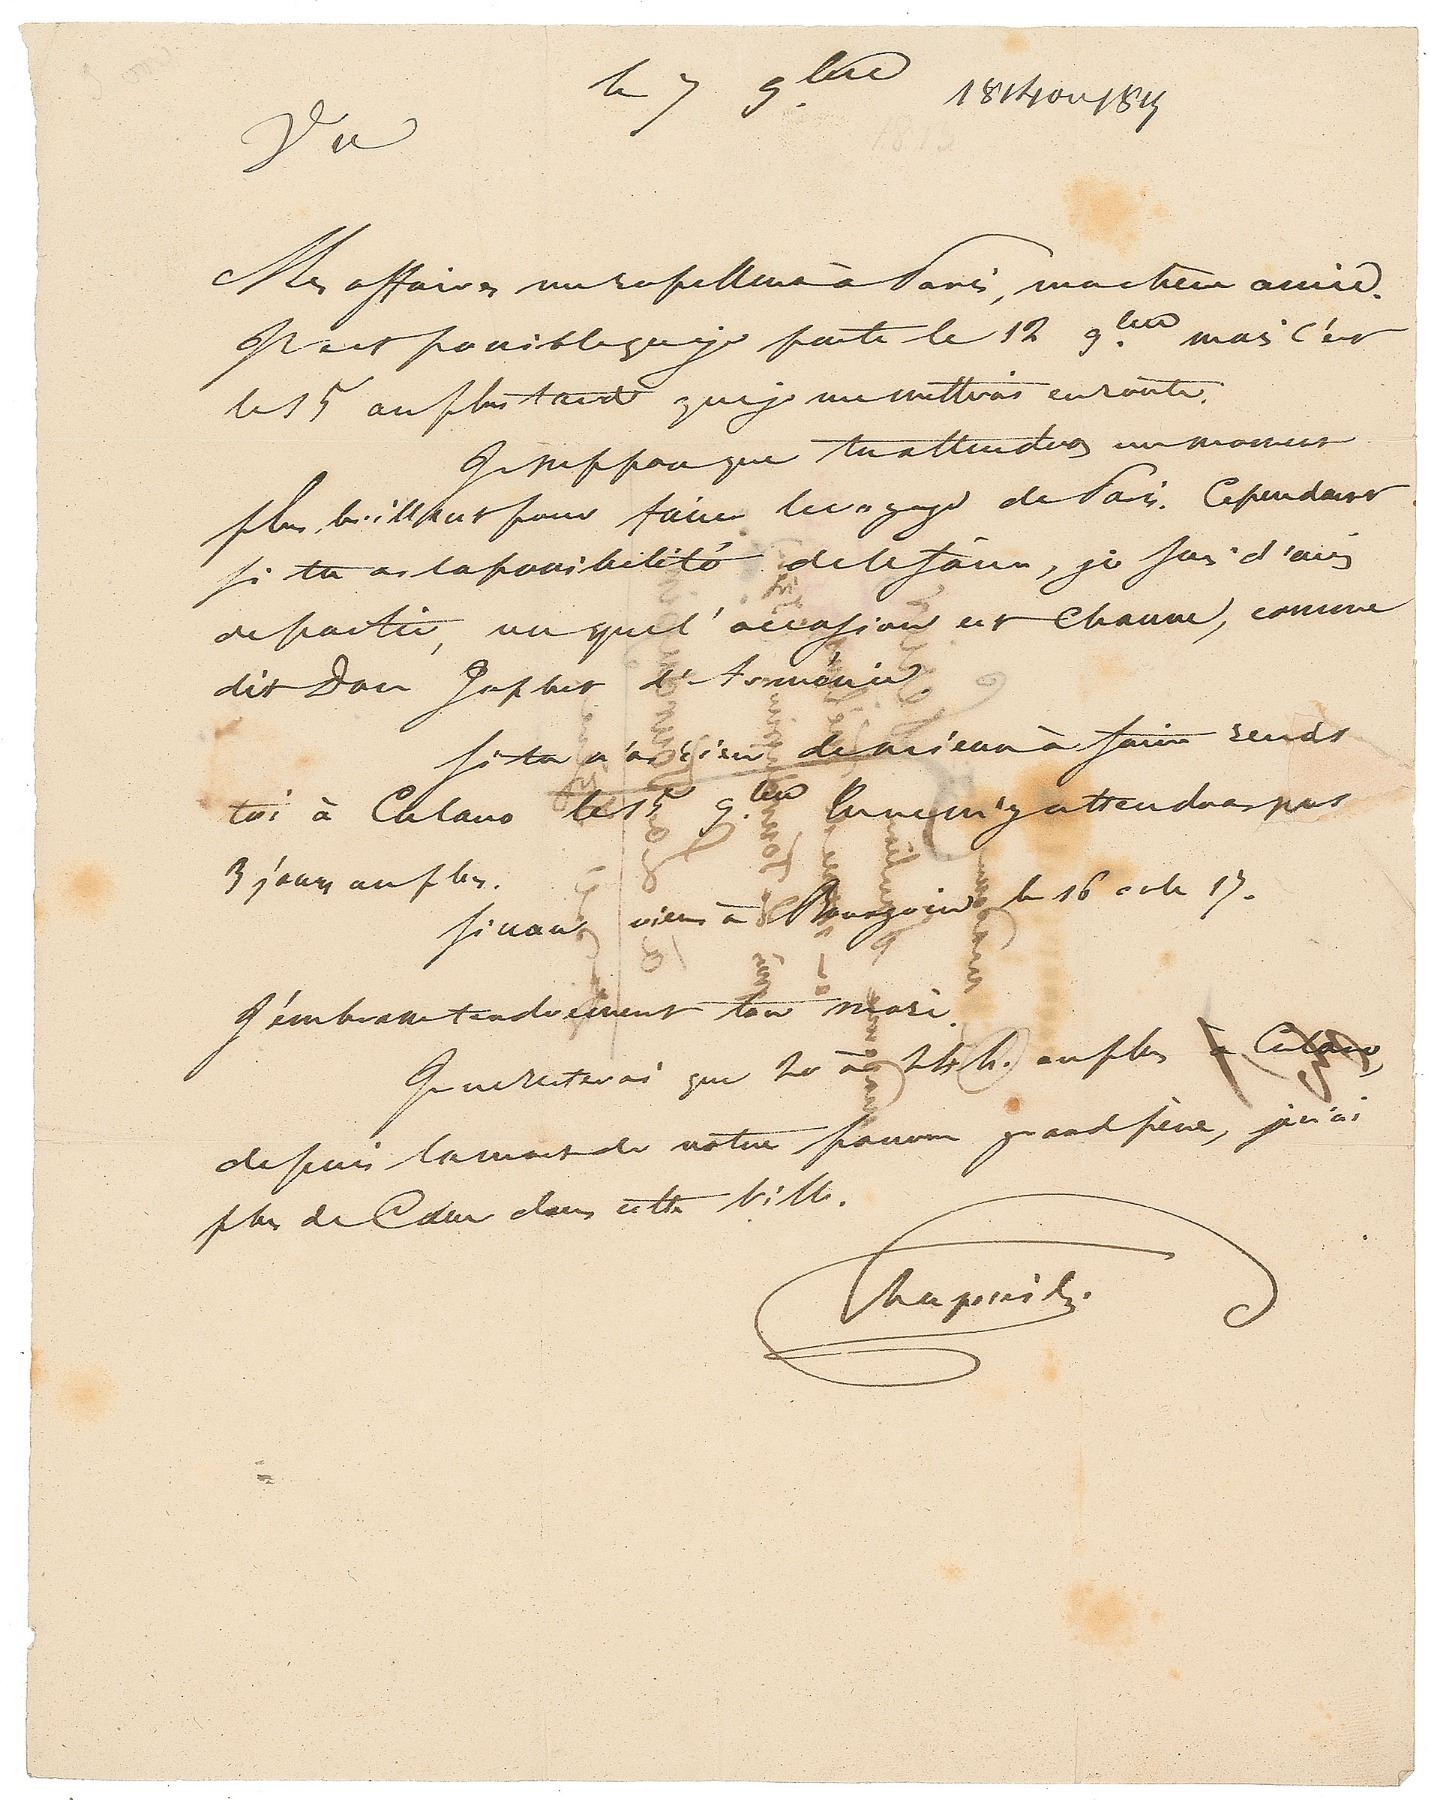 le 7 9.bre 1814 ou 1815
Vu
Mes affaires me rapellent à Paris, ma chère amie.
Il est possible que je parte le 12 9.bre mais c'est
le 15 au plus tard que je me mettrai en route.
Je suppose que tu attendras un moment
plus brillant pour faire le voyage de Paris. Cependant
si tu as la possibilité de le faire, je suis d'avis
de partir, vu que l'occasion est chauve, comme
dit Don Japhet d'Arménie
Si tu n'as rien de mieux à faire rends
toi à Cularo le 15 9.bre Tu ne m'y attendras pas
3 jours au plus.
Sinon viens à Bourgoin le 16 ou le 17.
J'embrasse tendrement ton mari.
Je ne resterai que 20 à 24 h. au plus à Cularo,
depuis la mort de notre pauvre grand père, je n'ai
plus de Cœur dans cette ville.